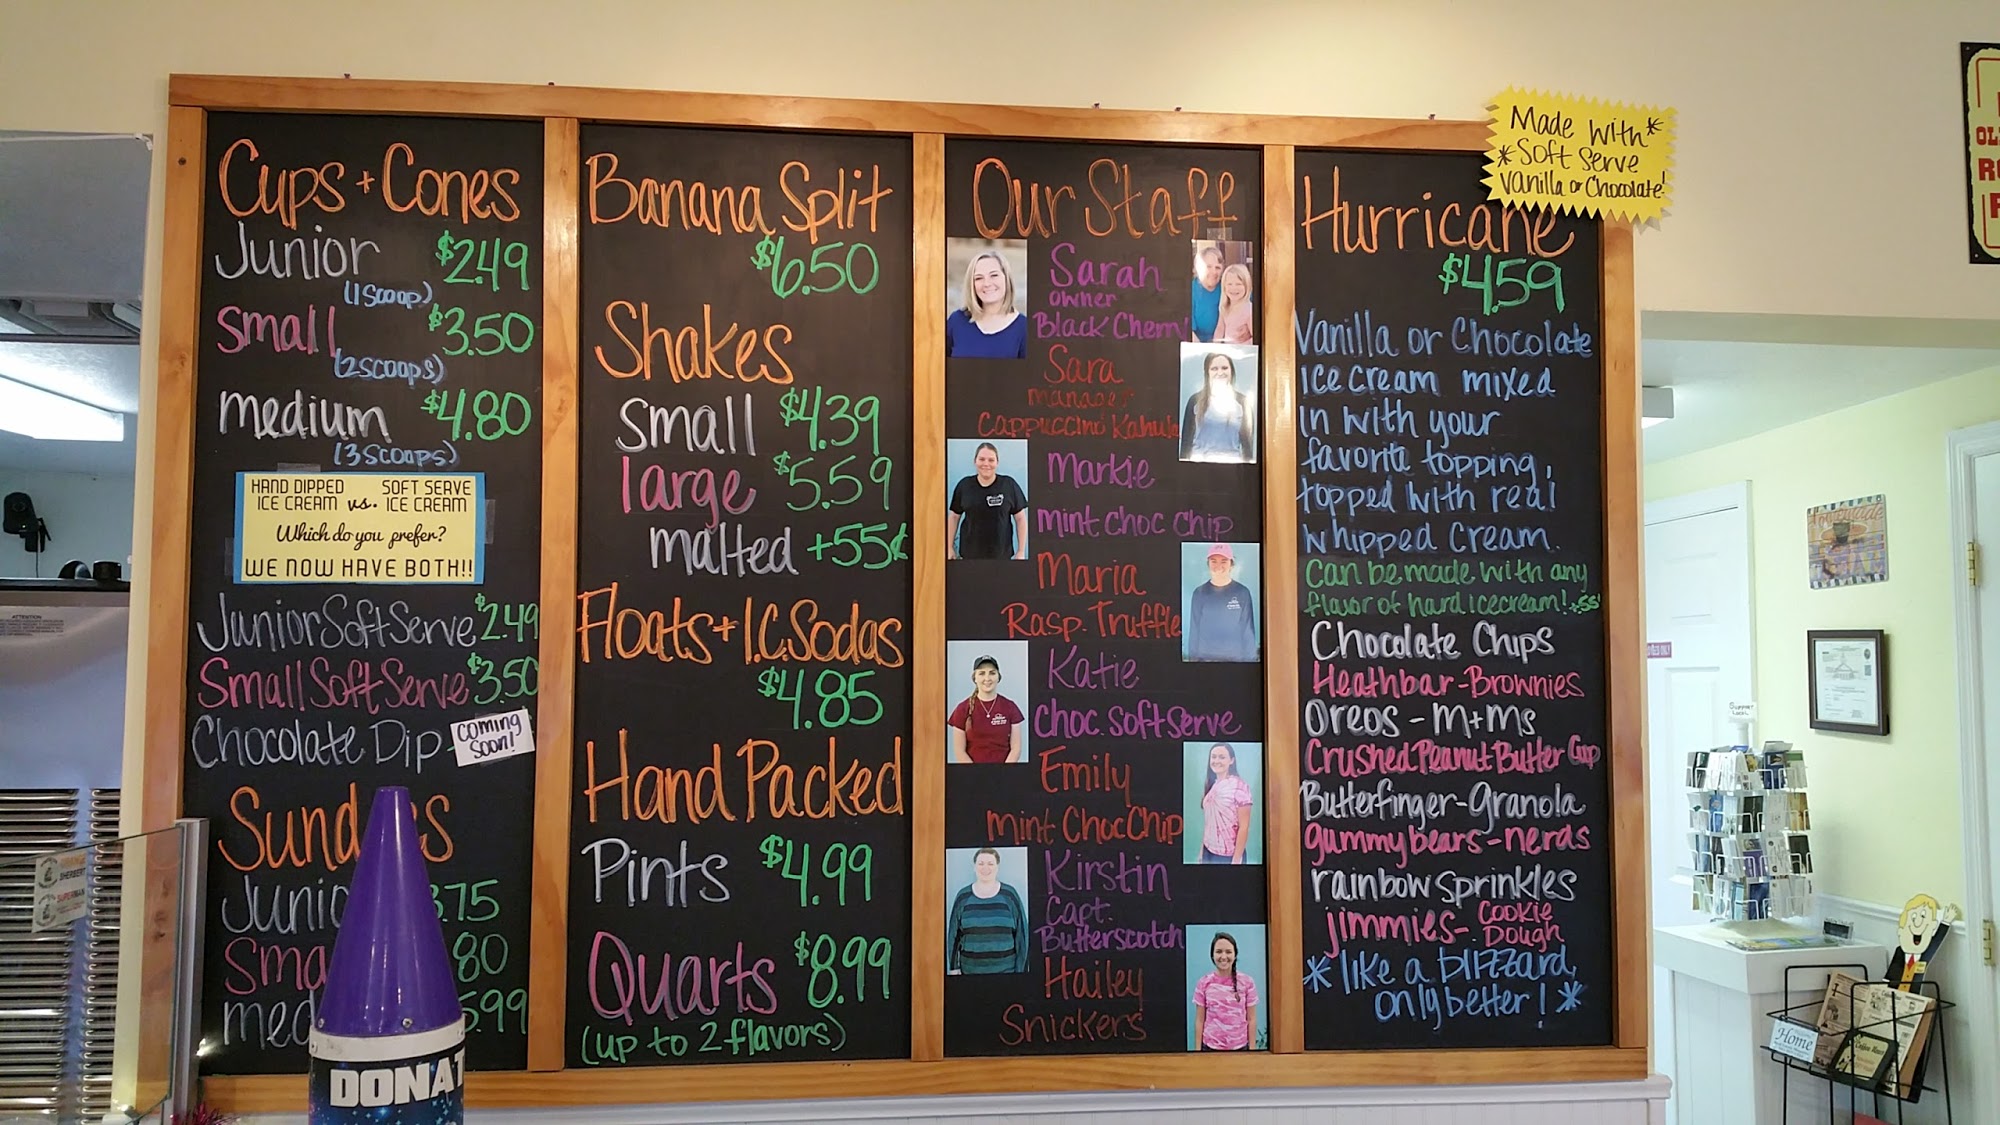 Made with*
*Soft Serve
vanilla or Chocolate!
Cups + Cones
Junior $2.49
(1 scoop)
Small $3.50
(2 scoops)
medium $4.80
(3 scoops)
HAND DIPPED ICE CREAM vs. SOFT SERVE ICE CREAM
Which do you prefer?
WE NOW HAVE BOTH!!
Junior Soft Serve $2.49
Small Soft Serve $3.50
Chocolate Dip -
coming soon!
Junio
Sma 80
med 5.99
DONAT
Banana Split
$6.50
Shakes
small $4.39
large $5.59
malted +55¢
Floats + I.C. Sodas
$4.85
Hand Packed
Pints $4.99
Quarts $8.99
(up to 2 flavors)
Our Staff
Sarah
owner
Black Cherry
Sara
manager
Cappuccino Kahula
Markie
mint choc chip
Maria
Rasp. Truffle
Katie
choc. soft serve
Emily
mint Choc Chip
Kirstin
Capt.
Butterscotch
Hailey
Snickers
Hurricane
$4.59
Vanilla or Chocolate
ice cream mixed
in with your
favorite topping,
topped with real
whipped cream.
Can be made with any
flavor of hard icecream! +.55¢
Chocolate Chips
Heathbar - Brownies
Oreos - m+ms
Crushed Peanut Butter Cup
Butterfinger - granola
gummybears - nerds
rainbow sprinkles
jimmies - Cookie Dough
* like a blizzard,
only better! *
SHERBERT
SUPERMAN
ATTENTION
Home